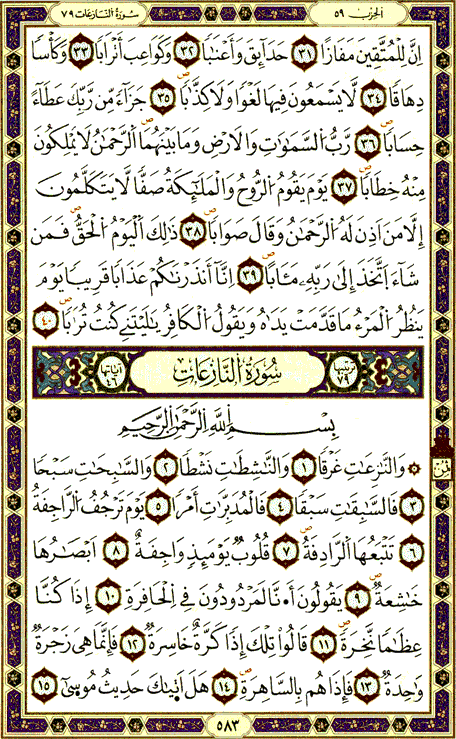 سورة النازعات ٧٩
الحزب ٥٩
إِنَّ لِلْمُتَّقِينَ مَفَازًا ٣١ حَدَآئِقَ وَأَعْنَابًا ٣٢ وَكَوَاعِبَ أَتْرَابًا ٣٣ وَكَأْسًا
دِهَاقًا ٣٤ لَّا يَسْمَعُونَ فِيهَا لَغْوًا وَلَا كِذَّابًا ٣٥ جَزَآءً مِّن رَّبِّكَ عَطَآءً
حِسَابًا ٣٦ رَّبُّ السَّمَٰوَٰتِ وَالْأَرْضِ وَمَا بَيْنَهُمَا الرَّحْمَٰنُ لَا يَمْلِكُونَ
مِنْهُ خِطَابًا ٣٧ يَوْمَ يَقُومُ الرُّوحُ وَالْمَلَٰٓئِكَةُ صَفًّا لَّا يَتَكَلَّمُونَ
إِلَّا مَنْ أَذِنَ لَهُ الرَّحْمَٰنُ وَقَالَ صَوَابًا ٣٨ ذَٰلِكَ الْيَوْمُ الْحَقُّ فَمَن
شَآءَ اتَّخَذَ إِلَىٰ رَبِّهِۦ مَـَٔابًا ٣٩ إِنَّآ أَنذَرْنَٰكُمْ عَذَابًا قَرِيبًا يَوْمَ
يَنظُرُ الْمَرْءُ مَا قَدَّمَتْ يَدَاهُ وَيَقُولُ الْكَافِرُ يَٰلَيْتَنِي كُنتُ تُرَابًا ٤٠
ترتيبها ٧٩ سُورَةُ النَّازِعَاتِ آياتها ٤٦
بِسْمِ اللَّهِ الرَّحْمَٰنِ الرَّحِيمِ
وَالنَّٰزِعَٰتِ غَرْقًا ١ وَالنَّٰشِطَٰتِ نَشْطًا ٢ وَالسَّٰبِحَٰتِ سَبْحًا
٣ فَالسَّٰبِقَٰتِ سَبْقًا ٤ فَالْمُدَبِّرَٰتِ أَمْرًا ٥ يَوْمَ تَرْجُفُ الرَّاجِفَةُ
٦ تَتْبَعُهَا الرَّادِفَةُ ٧ قُلُوبٌ يَوْمَئِذٍ وَاجِفَةٌ ٨ أَبْصَٰرُهَا
خَٰشِعَةٌ ٩ يَقُولُونَ أَءِنَّا لَمَرْدُودُونَ فِي الْحَافِرَةِ ١٠ إِذَا كُنَّا
عِظَٰمًا نَّخِرَةً ١١ قَالُوا تِلْكَ إِذًا كَرَّةٌ خَاسِرَةٌ ١٢ فَإِنَّمَا هِيَ زَجْرَةٌ
وَٰحِدَةٌ ١٣ فَإِذَا هُم بِالسَّاهِرَةِ ١٤ هَلْ أَتَىٰكَ حَدِيثُ مُوسَىٰٓ ١٥
٥٨٣